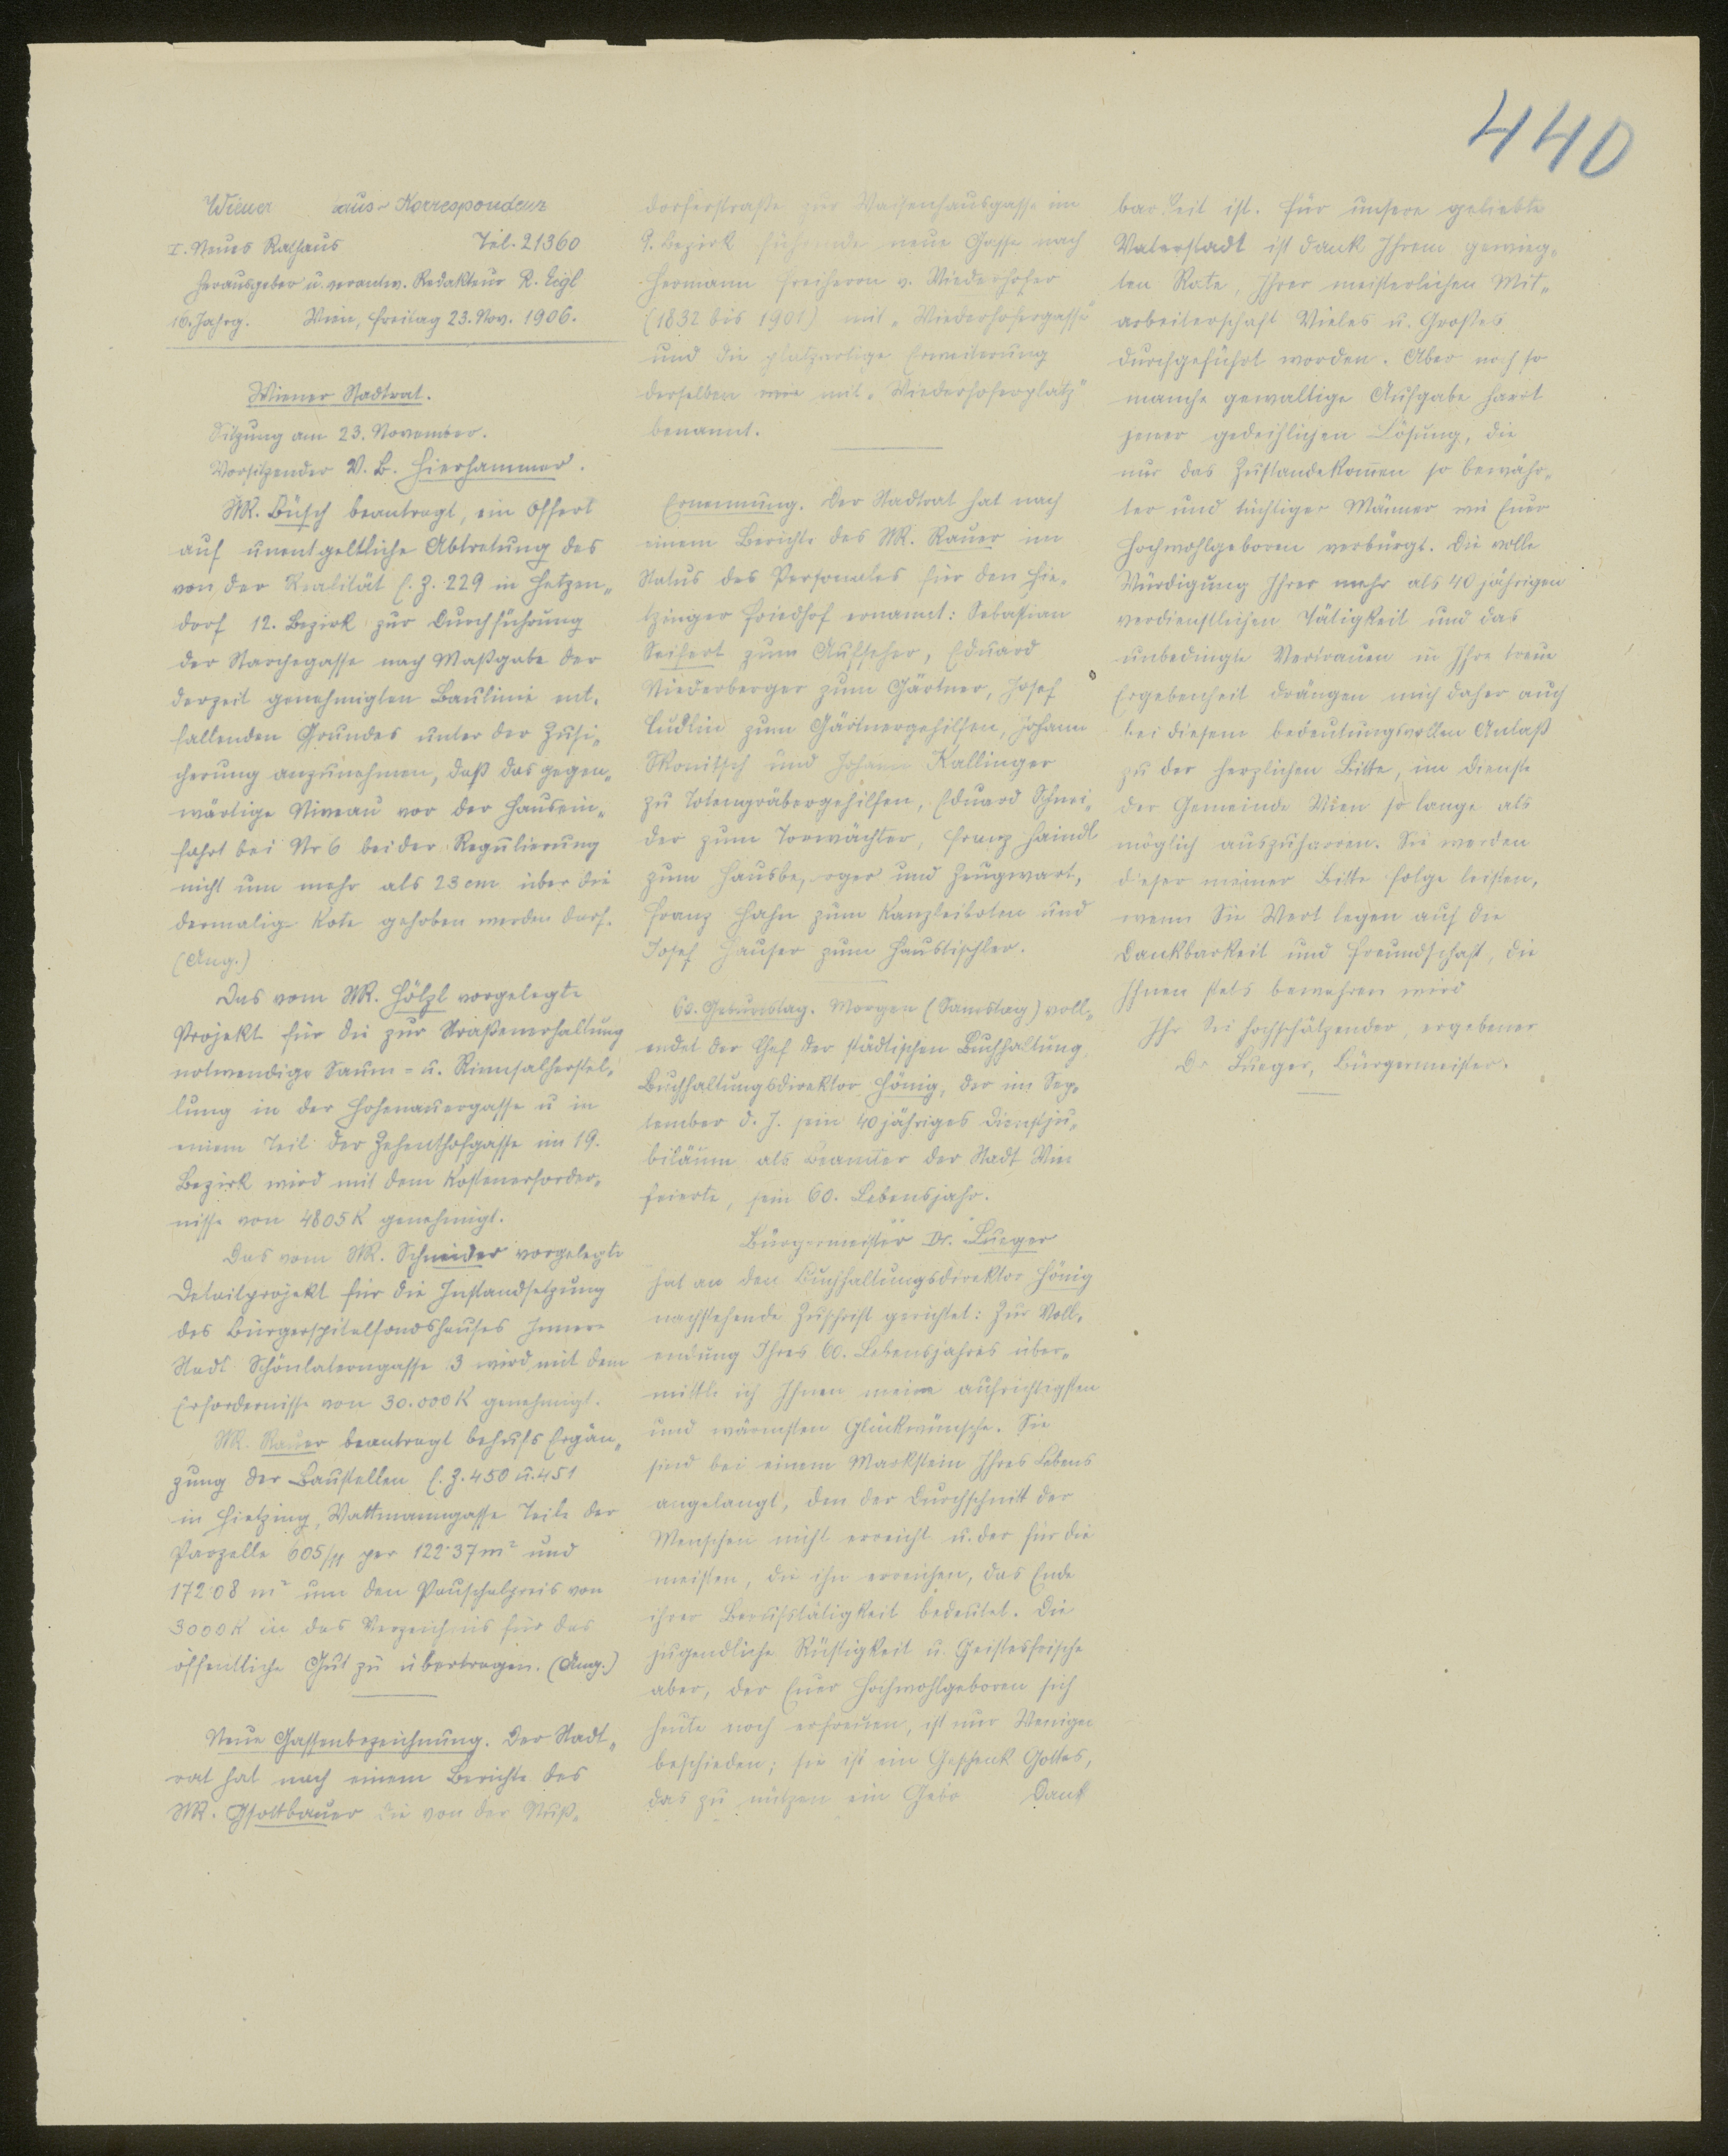 440
Wiener aus-Korrespondenz
I. Neues Rathaus Tel. 21360
Herausgeber u. verantw. Redakteur R. Eigl
16. Jahrg. Wien, Freitag 23. Nov. 1906.
Wiener Stadtrat.
Sitzung am 23. November.
Vorsitzender V. B. Hierhammer.
StR. Büsch beantragt, ein Offert
auf unentgeltliche Abtretung des
von der Realität C. Z. 229 in Hetzen„
dorf 12. Bezirk zur Durchführung
der Starchegasse nach Maßgabe der
derzeit genehmigten Baulinie ent„
fallenden Grundes unter der Zusi„
cherung anzunehmen, daß das gegen„
wärtige Niveau vor der Hausein„
fahrt bei Nr 6 bei der Regulierung
nicht um mehr als 23 cm über die
dermalige Kote gehoben werden darf.
(Ang.)
Das vom StR. Hölzl vorgelegte
Projekt für die zur Straßenerhaltung
notwendige Saum- u. Rinnsalherstel„
lung in der Hohenauergasse u in
einem Teil der Zehenthofgasse im 19.
Bezirk wird mit dem Kostenerforder„
nisse von 4805 K genehmigt.
Das vom StR. Schneider vorgelegte
Detailprojekt für die Instandsetzung
des Bürgerspitalfondshauses Innere
Stadt Schönlaterngasse 3 wird mit dem
Erfordernisse von 30.000 K genehmigt.
StR. Rauer beantragt behufs Ergän„
zung der Baustellen C. Z. 450 u. 451
in Hietzing, Wattmanngasse Teile der
Parzelle 605/11 per 122·37 m² und
172·08 m² um den Pauschalpreis von
3000 K in das Verzeichnis für das
öffentliche Gut zu übertragen. (Ang.)
Neue Gassenbezeichnung. Der Stadt„
rat hat nach einem Berichte des
StR. Gsottbauer die von der Nuß„
dorferstraße zur Waisenhausgasse im
9. Bezirk führende neue Gasse nach
Hermann Freiherrn v. Wiederhofer
(1832 bis 1901) mit „Wiederhofergasse"
und die platzartige Erweiterung
derselben mit „Wiederhoferplatz"
benannt.
Ernennung. Der Stadtrat hat nach
einem Berichte des StR. Rauer im
Status des Personales für den Hie„
tzinger Friedhof ernannt: Sebastian
Seifert zum Aufseher, Eduard
Niederberger zum Gärtner, Josef
Ludlin zum Gärtnergehilfen, Johann
Skonitsch und Johann Kallinger
zu Totengräbergehilfen, Eduard Schnei„
der zum Torwächter, Franz Haindl
zum Hausbe, orger und Zeugwart,
Franz Hahn zum Kanzleiboten und
Josef Hauser zum Haustischler.
60. Geburtstag. Morgen (Samstag) voll„
endet der Chef der städtischen Buchhaltung,
Buchhaltungsdirektor Hönig, der im Sep„
tember d. J. sein 40 jähriges Dienstju„
biläum als Beamter der Stadt Wien
feierte, sein 60. Lebensjahr.
Bürgermeister Dr. Lueger
hat an den Buchhaltungsdirektor Hönig
nachstehende Zuschrift gerichtet: Zur Voll„
endung Ihres 60. Lebensjahres über„
mittle ich Ihnen meine aufrichtigsten
und wärmsten Glückwünsche. Sie
sind bei einem Markstein Ihres Lebens
angelangt, den der Durchschnitt der
Menschen nicht erreicht u. der für die
meisten, die ihn erreichen, das Ende
ihrer Berufstätigkeit bedeutet. Die
jugendliche Rüstigkeit u. Geistesfrische
aber, der Euer Hochwohlgeboren sich
heute noch erfreuen, ist nur Wenigen
beschieden; sie ist ein Geschenk Gottes,
das zu nützen ein Gebo Dank
barkeit ist. Für unsere geliebte
Vaterstadt ist dank Ihrem gewieg„
ten Rate, Ihrer meisterlichen Mit„
arbeiterschaft Vieles u. Großes
durchgeführt worden. Aber noch so
manche gewaltige Aufgabe harrt
jener gedeihlichen Lösung, die
nur das Zustandekommen so bewähr„
ter und tüchtiger Männer wie Euer
Hochwohlgeboren verbürgt. Die volle
Würdigung Ihrer mehr als 40 jährigen
verdienstlichen Tätigkeit und das
unbedingte Vertrauen in Ihre treue
Ergebenheit drängen mich daher auch
bei diesem bedeutungsvollen Anlaß
zu der herzlichen Bitte, im Dienste
der Gemeinde Wien so lange als
möglich auszuharren. Sie werden
dieser meiner Bitte Folge leisten,
wenn Sie Wert legen auf die
Dankbarkeit und Freundschaft, die
Ihnen stets bewahren wird
Ihr Sie hochschätzender, ergebener
Dr Lueger, Bürgermeister.